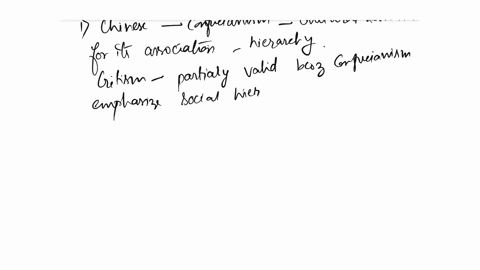 1) Chinese → Confucianism –
for its association – hierarchy.
Critism – partialy valid bcoz Confucianism
emphasize social hier